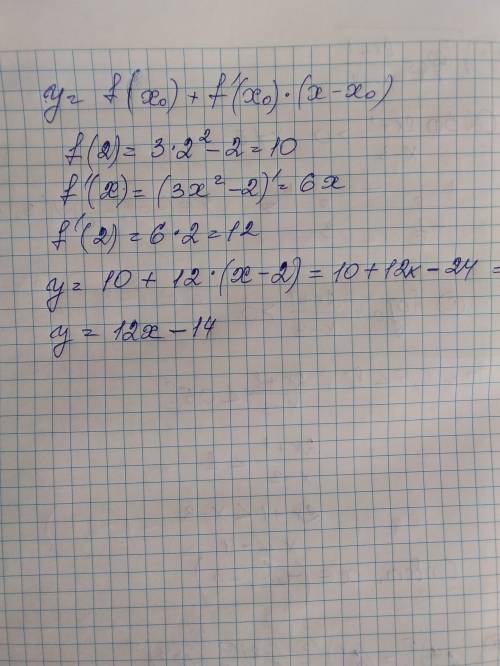 y = f(x₀) + f'(x₀)·(x-x₀)
f(2) = 3·2² - 2 = 10
f'(x) = (3x² - 2)' = 6x
f'(2) = 6·2 = 12
y = 10 + 12·(x-2) = 10 + 12x - 24 =
y = 12x - 14